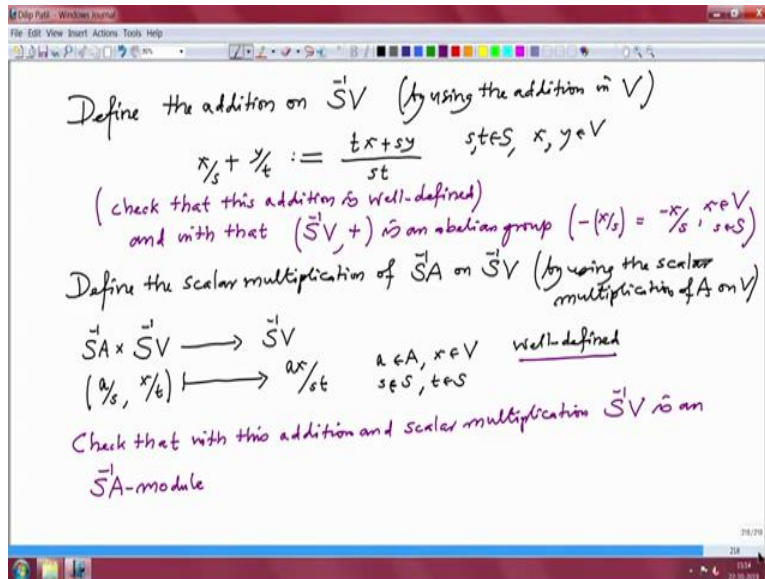 Dilip Patil - Windows Journal
File Edit View Insert Actions Tools Help
Define the addition on S⁻¹V (by using the addition in V)
x/s + y/t := (tx+sy)/st s,t∈S, x, y∈V
(check that this addition is well-defined)
and with that (S⁻¹V, +) is an abelian group (-(x/s) = -x/s, x∈V s∈S)
Define the scalar multiplication of S⁻¹A on S⁻¹V (by using the scalar
multiplication of A on V)
S⁻¹A × S⁻¹V ⟶ S⁻¹V
(a/s, x/t) ⟼ ax/st a∈A, x∈V s∈S, t∈S well-defined
Check that with this addition and scalar multiplication S⁻¹V is an
S⁻¹A-module
218